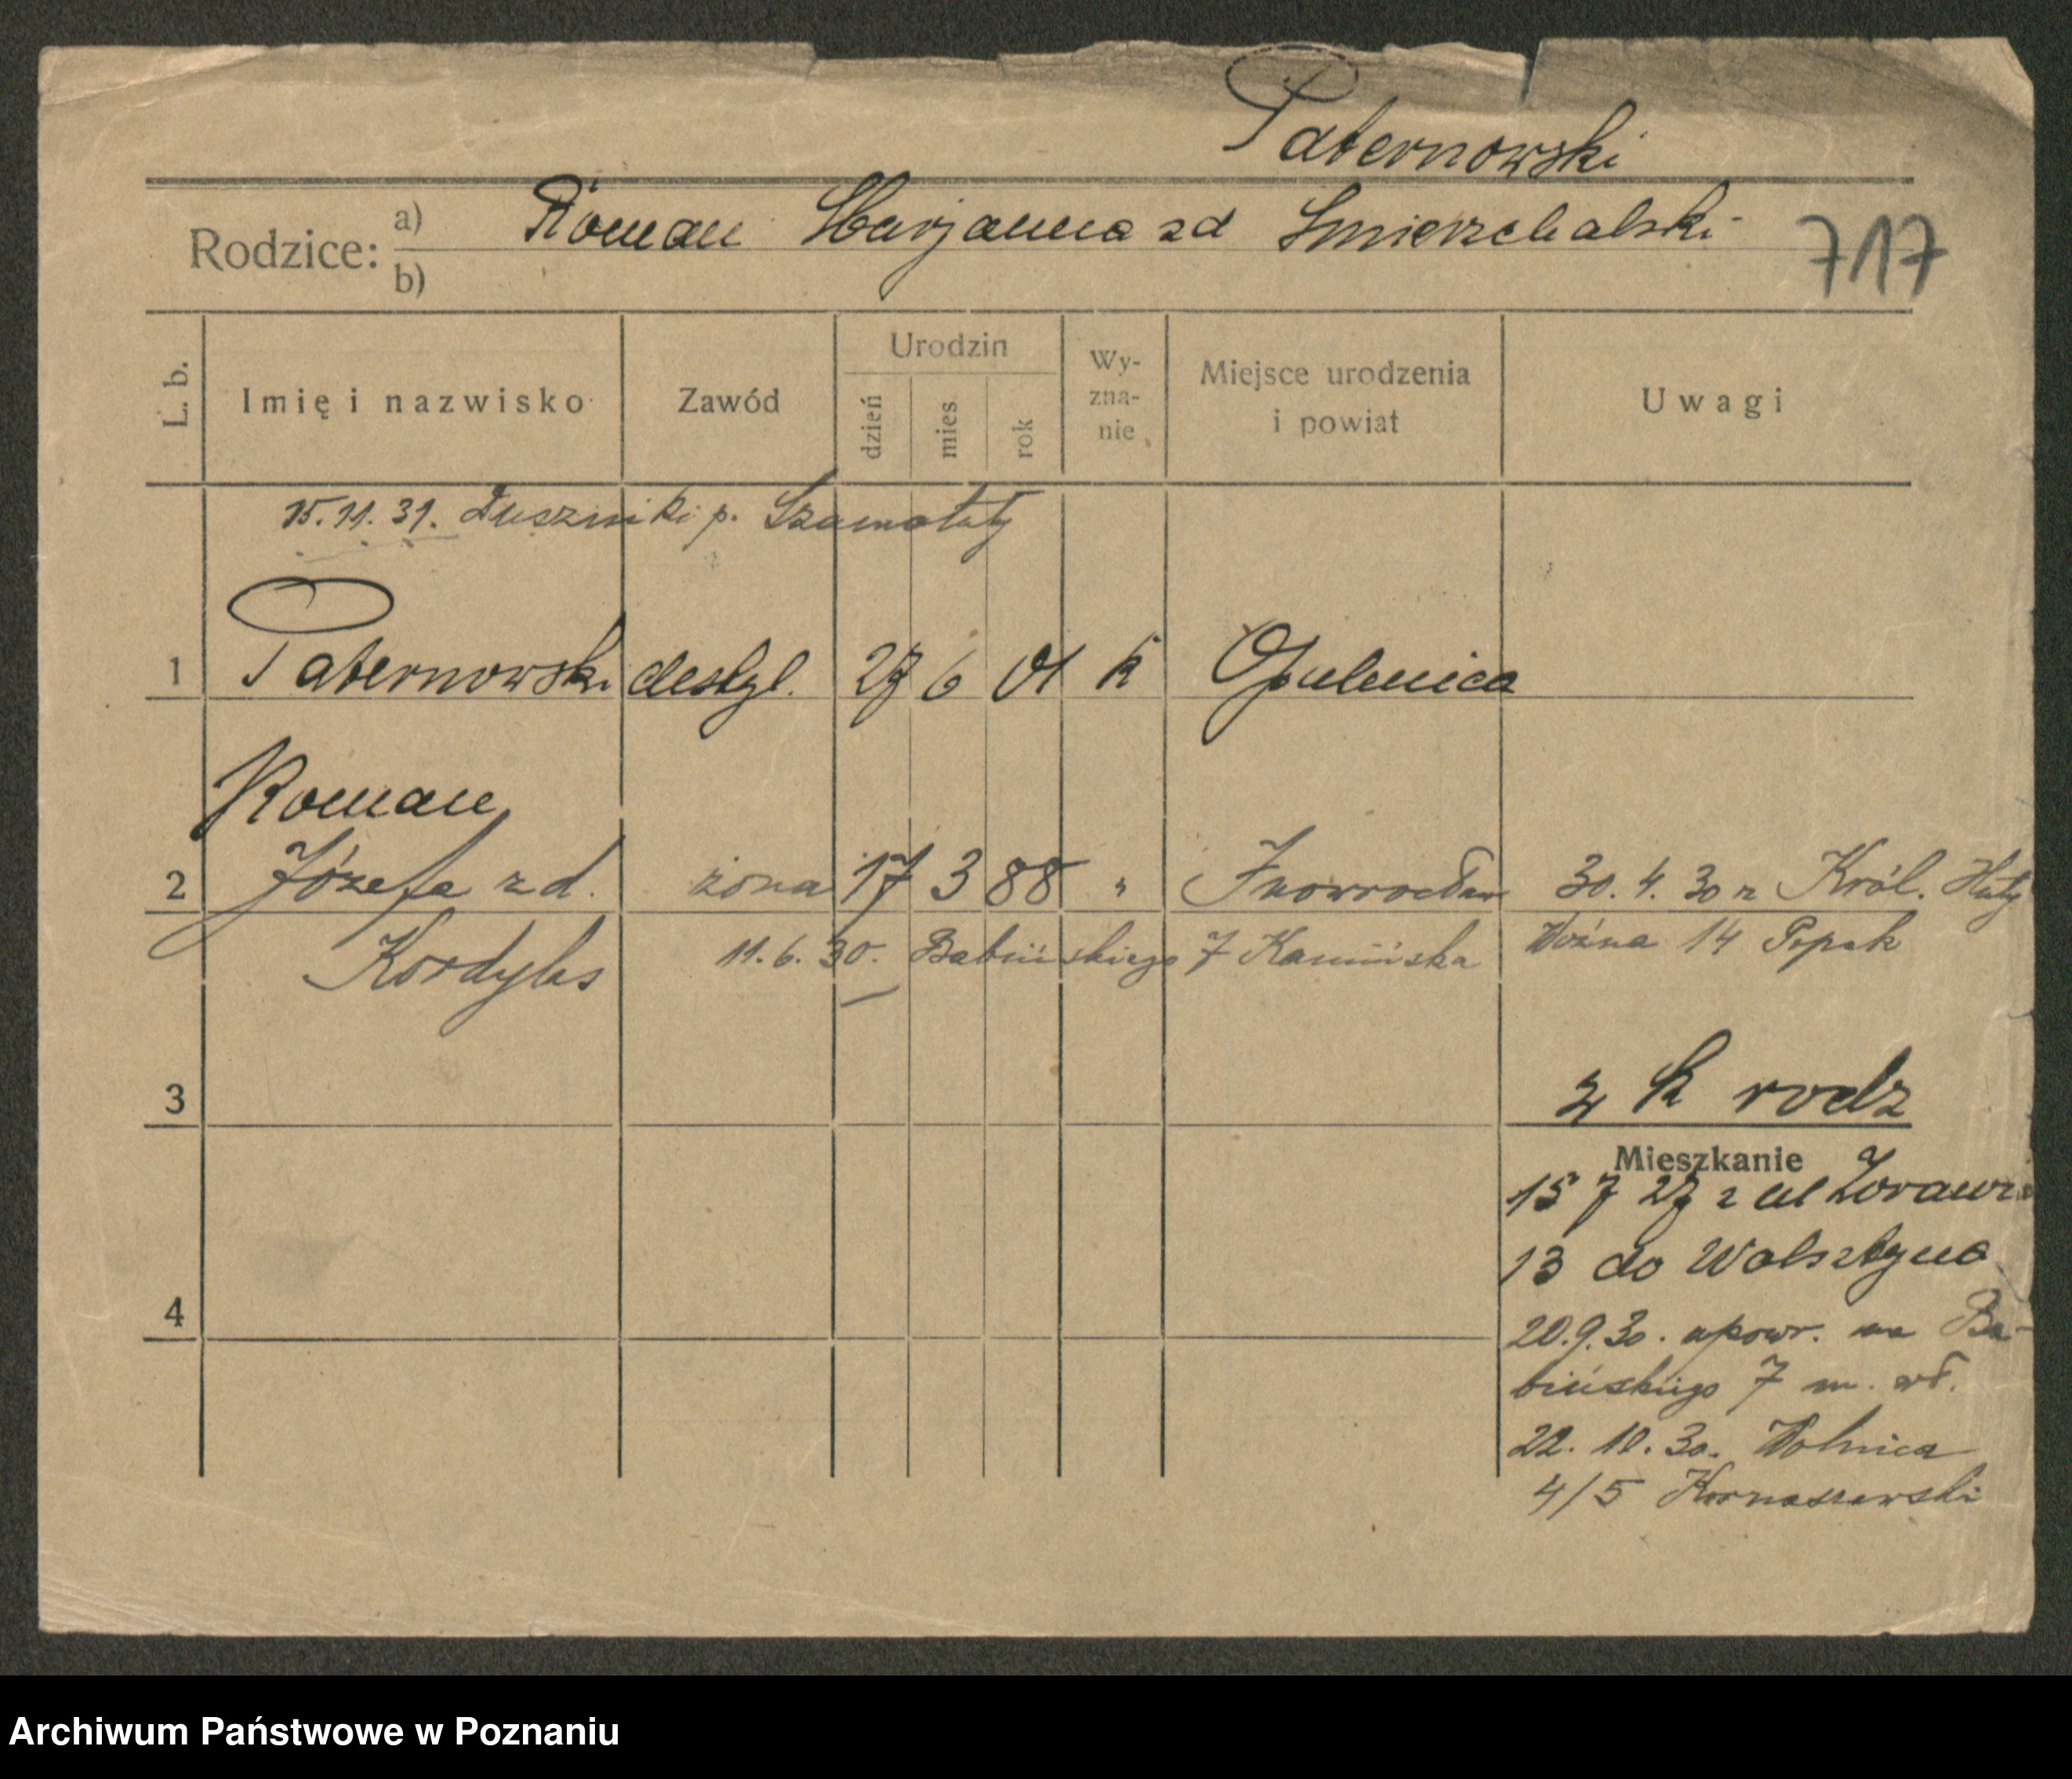 Paternowski
Rodzice: a) Roman Marjanna zd Smierzchalski
b)
717
L. b. Imię i nazwisko Zawód Urodzin dzień mies. rok Wy-zna-nie Miejsce urodzenia i powiat Uwagi
15.11.31. Duszniki p. Szamotuły
1 Paternowski destyl. 27 6 01 k Opalenica
Roman
2 Józefa z d. żona 17 3 88 " Inowrocław 30.4.30 z Król. Huty
Kordylas 11.6.30. Babińskiego 7 Kamińska Woźna 14 Popak
3 z k rodz
Mieszkanie
15 7 27 z ul Żoraw
13 do Wolsztyna
4
20.9.30. spowr. na Ba-
bińskiego 7 m. wł.
22.10.30. Wolnica
4/5 Kornaszewski
Archiwum Państwowe w Poznaniu